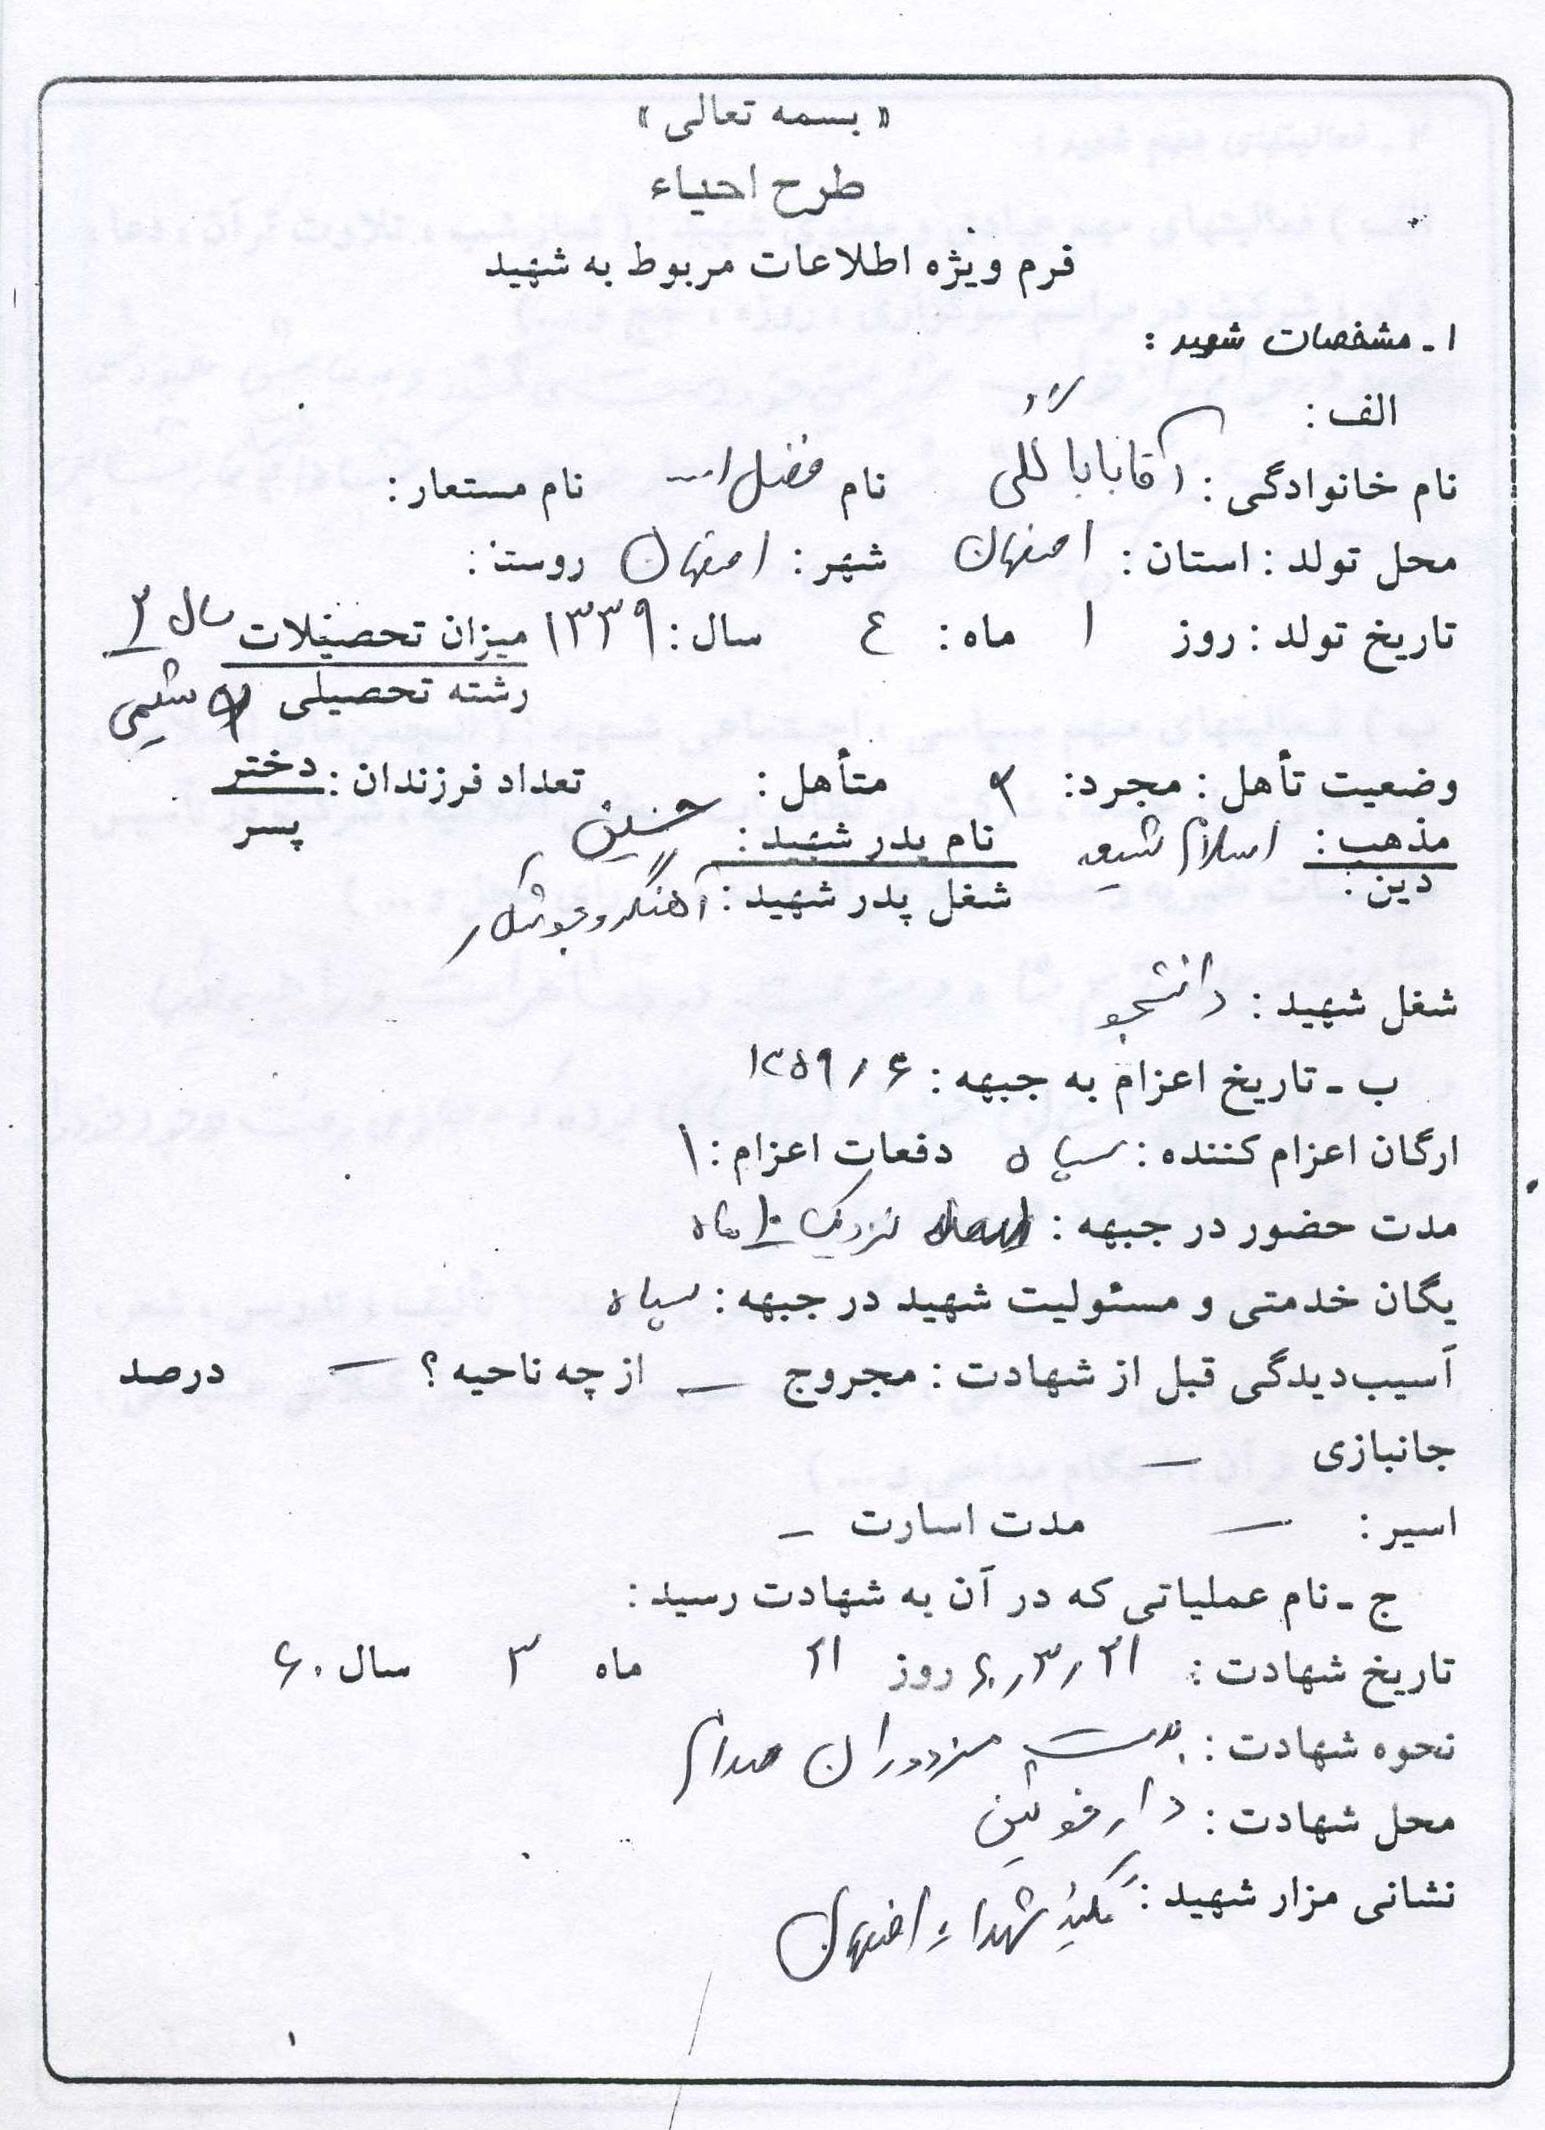 « بسمه تعالی »
طرح احیاء
فرم ویژه اطلاعات مربوط به شهید
۱ـ مشخصات شهید :
الف :
نام خانوادگی : آقابابا گلی نام فضل ا... نام مستعار :
محل تولد : استان : اصفهان شهر : اصفهان روستا :
تاریخ تولد : روز ۱ ماه : ٤ سال : ۱۳۳۹ میزان تحصیلات سال ۲
رشته تحصیلی شیمی
وضعیت تأهل : مجرد : متأهل : تعداد فرزندان : دختر
پسر
مذهب : اسلام شیعه نام پدر شهید : حسین
دین : شغل پدر شهید : آهنگر و جوشکار
شغل شهید : دانشجو
ب ـ تاریخ اعزام به جبهه : ۱۳۵۹/۶
ارگان اعزام کننده : سپاه دفعات اعزام : ۱
مدت حضور در جبهه : نزدیک ۱۰ ماه
یگان خدمتی و مسئولیت شهید در جبهه : سپاه
آسیب‌دیدگی قبل از شهادت : مجروح — از چه ناحیه ؟ — درصد
جانبازی —
اسیر : — مدت اسارت —
ج ـ نام عملیاتی که در آن به شهادت رسید :
تاریخ شهادت : ۶۰/۳/۲۱ روز ۲۱ ماه ۳ سال ۶۰
نحوه شهادت : بدست مزدوران صدام
محل شهادت : دارخوئین
نشانی مزار شهید : تکیه شهداء اصفهان
۱